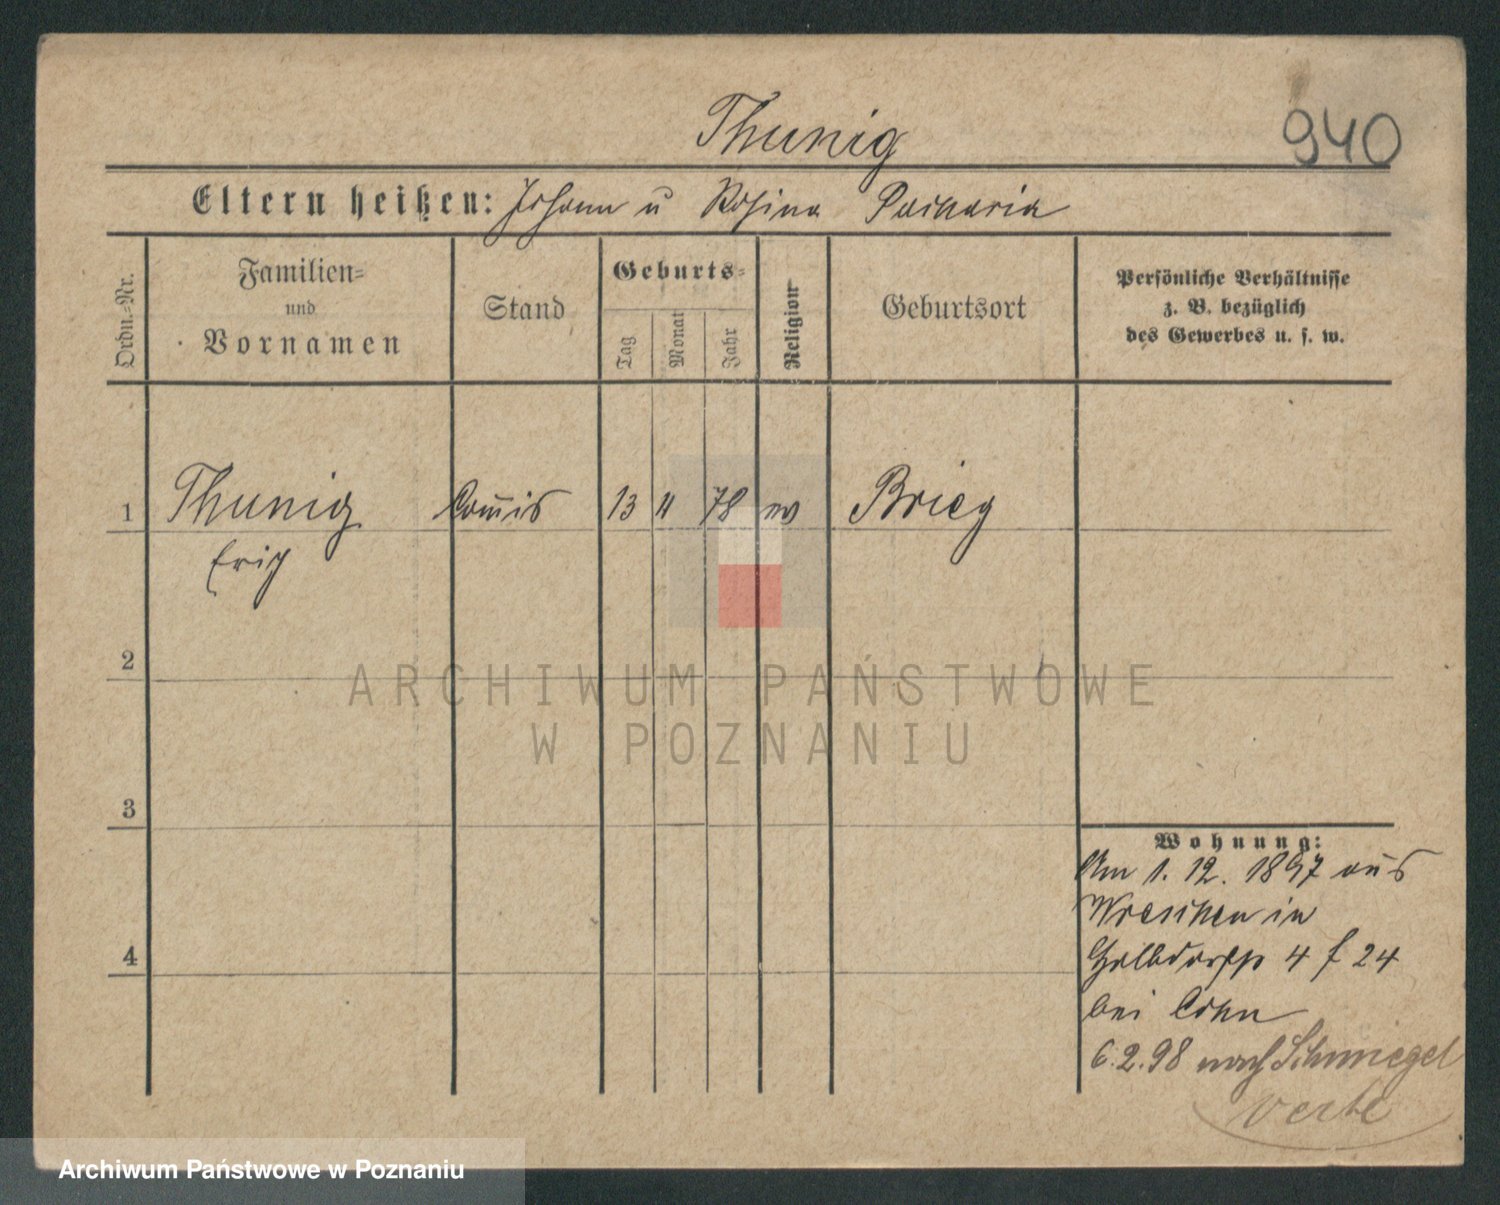 Thunig
940
Eltern heißen: Johann u Rosina
Ordn.-Nr.
Familien-
und
Vornamen
Stand
Geburts-
Tag
Monat
Jahr
Religion
Geburtsort
Persönliche Verhältnisse
z. B. bezüglich
des Gewerbes u. s. w.
1 Thunig Com̄is 13 11 78 ev Brieg
Erich
2
ARCHIWUM PAŃSTWOWE
W POZNANIU
3
4
Wohnung:
Am 1. 12. 1897 aus
Wreschen in
Halbdorfstr 4 f 24
bei Cohn
6.2.98 nach Schmiegel
verte
Archiwum Państwowe w Poznaniu